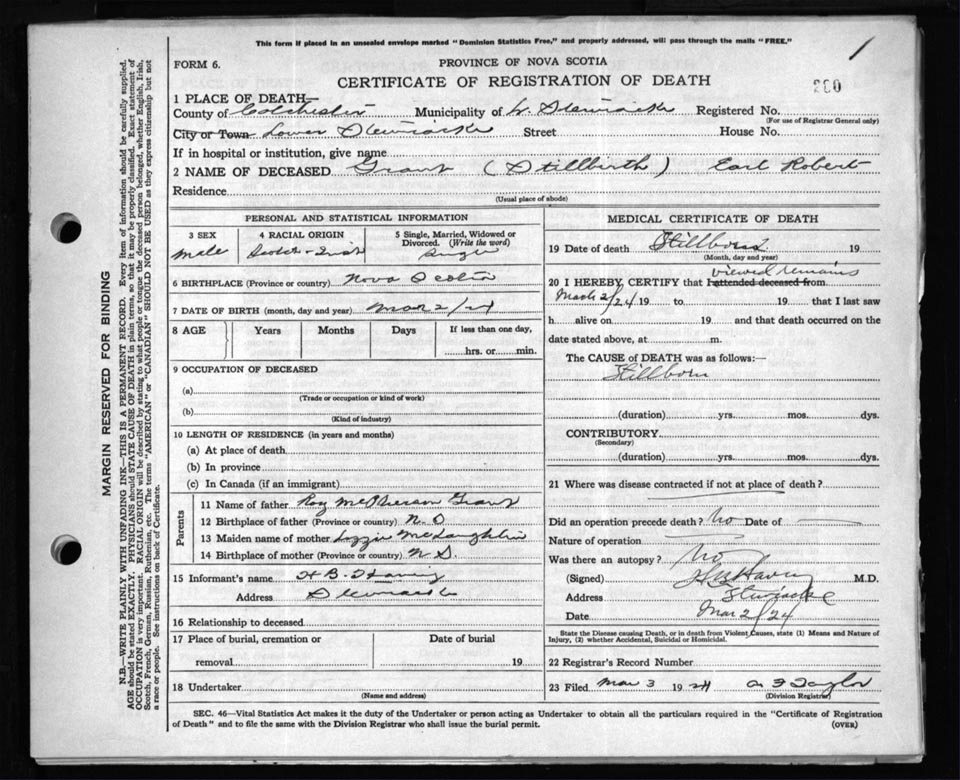 This form if placed in an unsealed envelope marked "Dominion Statistics Free," and properly addressed, will pass through the mails "FREE."
1
FORM 6.
PROVINCE OF NOVA SCOTIA
CERTIFICATE OF REGISTRATION OF DEATH
280
1 PLACE OF DEATH—
County of Colchester Municipality of L. Stewiacke Registered No.
(For use of Registrar General only)
City or Town Lower Stewiacke Street House No.
If in hospital or institution, give name
2 NAME OF DECEASED Grant (Stillbirth) Earl Robert
Residence
(Usual place of abode)
PERSONAL AND STATISTICAL INFORMATION
3 SEX 4 RACIAL ORIGIN 5 Single, Married, Widowed or Divorced. (Write the word)
male Scotch-Irish Single
6 BIRTHPLACE (Province or country) Nova Scotia
7 DATE OF BIRTH (month, day and year) Mar 2/24
8 AGE Years Months Days If less than one day,
hrs. or min.
9 OCCUPATION OF DECEASED
(a)
(Trade or occupation or kind of work)
(b)
(Kind of industry)
10 LENGTH OF RESIDENCE (in years and months)
(a) At place of death
(b) In province
(c) In Canada (if an immigrant)
Parents
11 Name of father Roy McPherson Grant
12 Birthplace of father (Province or country) N. S
13 Maiden name of mother Lizzie McLaughlin
14 Birthplace of mother (Province or country) N S.
15 Informant's name H B. Havey
Address Stewiacke
16 Relationship to deceased
17 Place of burial, cremation or removal Date of burial
19
18 Undertaker
(Name and address)
MEDICAL CERTIFICATE OF DEATH
19 Date of death Stillborn 19
(Month, day and year)
viewed remains
20 I HEREBY CERTIFY that I attended deceased from
March 2/24 19 to 19 that I last saw
h alive on 19 and that death occurred on the
date stated above, at m.
The CAUSE of DEATH was as follows:—
Stillborn
(duration) yrs. mos. dys.
CONTRIBUTORY
(Secondary)
(duration) yrs. mos. dys.
21 Where was disease contracted if not at place of death?
Did an operation precede death? No Date of
Nature of operation
Was there an autopsy? No
(Signed) H B Havey M.D.
Address Stewiacke
Date Mar 2/24
State the Disease causing Death, or in death from Violent Causes, state (1) Means and Nature of
Injury, (2) whether Accidental, Suicidal or Homicidal.
22 Registrar's Record Number
23 Filed Mar 3 1924 A F Taylor
(Division Registrar)
SEC. 46—Vital Statistics Act makes it the duty of the Undertaker or person acting as Undertaker to obtain all the particulars required in the "Certificate of Registration
of Death" and to file the same with the Division Registrar who shall issue the burial permit.
(OVER)
MARGIN RESERVED FOR BINDING
N.B.—WRITE PLAINLY WITH UNFADING INK—THIS IS A PERMANENT RECORD. Every item of information should be carefully supplied.
AGE should be stated EXACTLY. PHYSICIANS should STATE CAUSE OF DEATH in plain terms, so that it may be properly classified. Exact statement of
OCCUPATION is very important. RACIAL ORIGIN will be described by stating to what people or tongue the deceased person belonged, whether English, Irish,
Scotch, French, German, Russian, Ruthenian, etc. The terms "AMERICAN" "CANADIAN" SHOULD NOT BE USED as they express citizenship but not
a race or people. See instructions on back of Certificate.